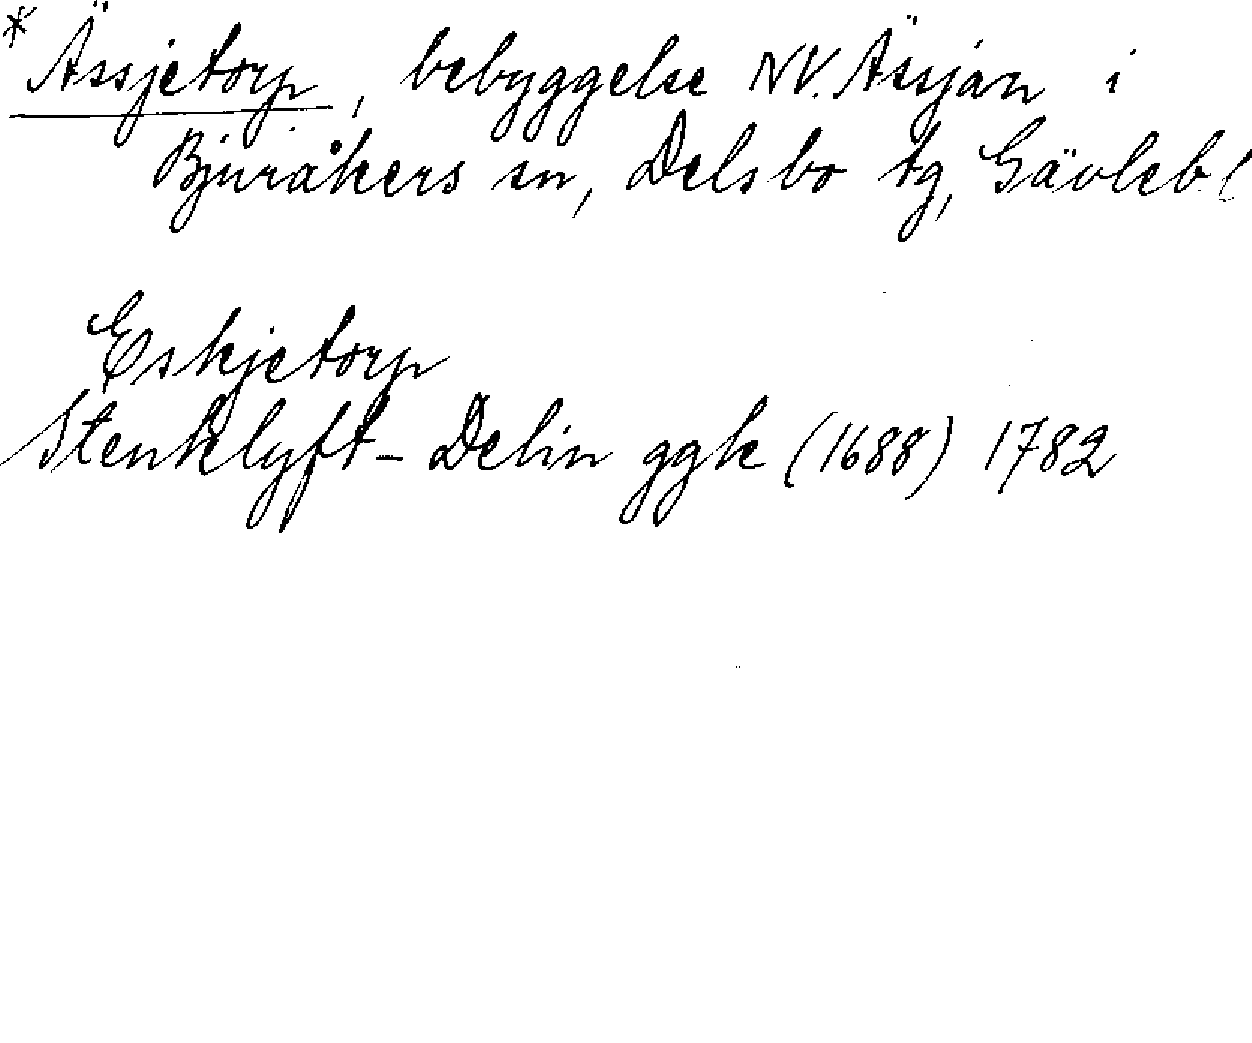 * Ässjetorp, bebyggelse NV. Ässjån i
Bjuråkers sn, Delsbo tg, Gävleb l
Eskjetorp
Stenklyft - Delin ggk (1688) 1782